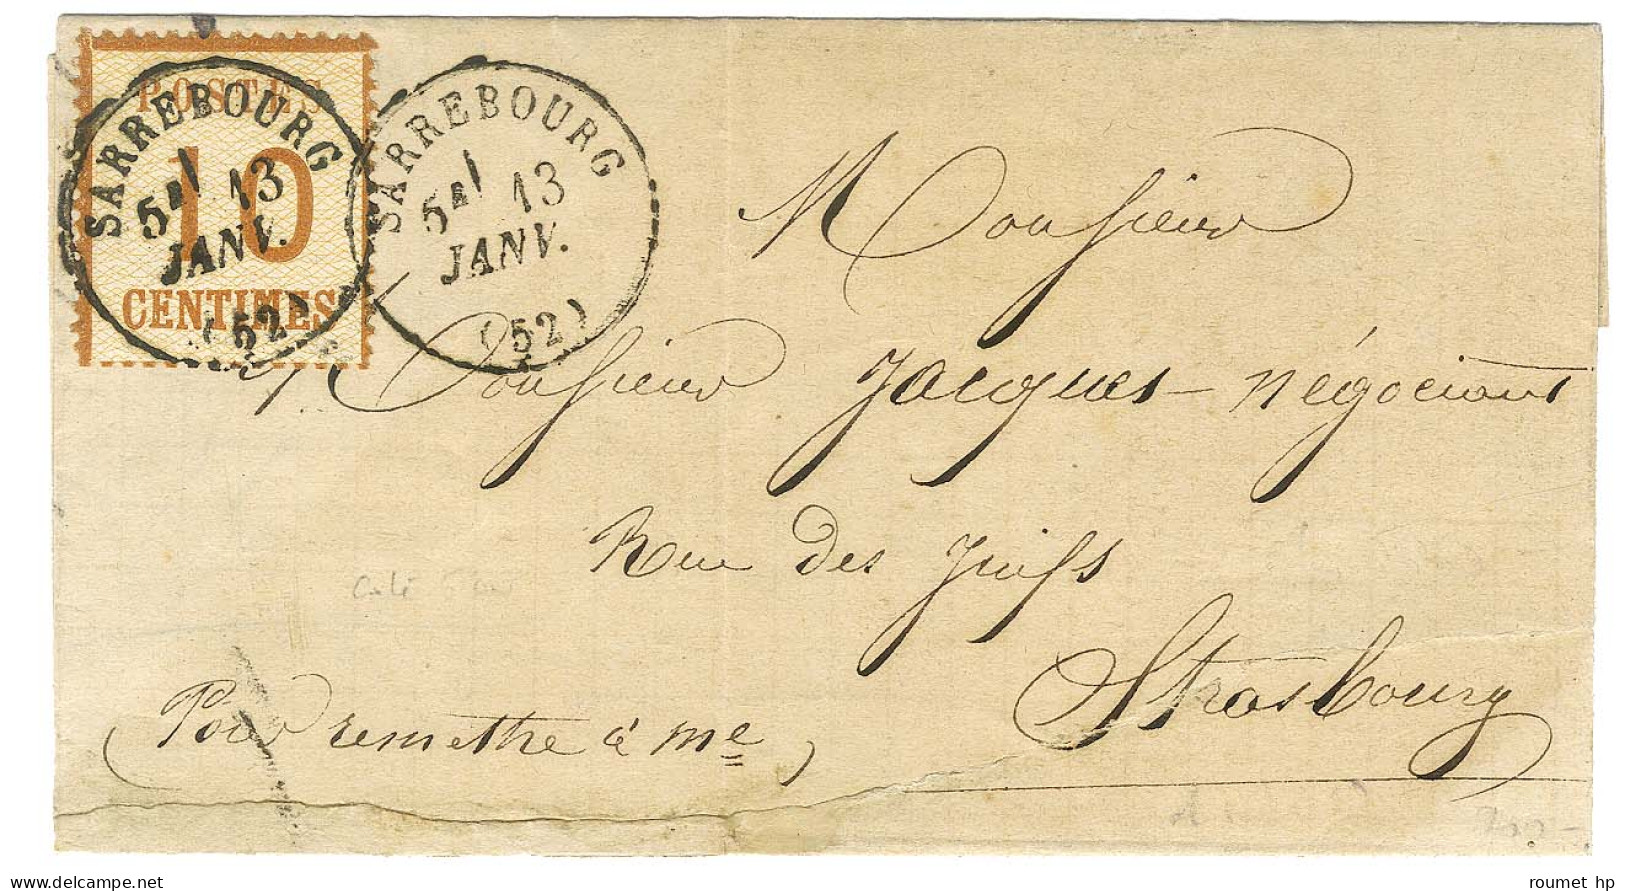 POSTES
10
CENTIMES
SARREBOURG
5E 13
JANV.
(52)
SARREBOURG
5E 13
JANV.
(52)
Monsieur
Monsieur Jacques - négociant
Rue des Juifs
Strasbourg
(Pour remettre à Me)
roumet hp